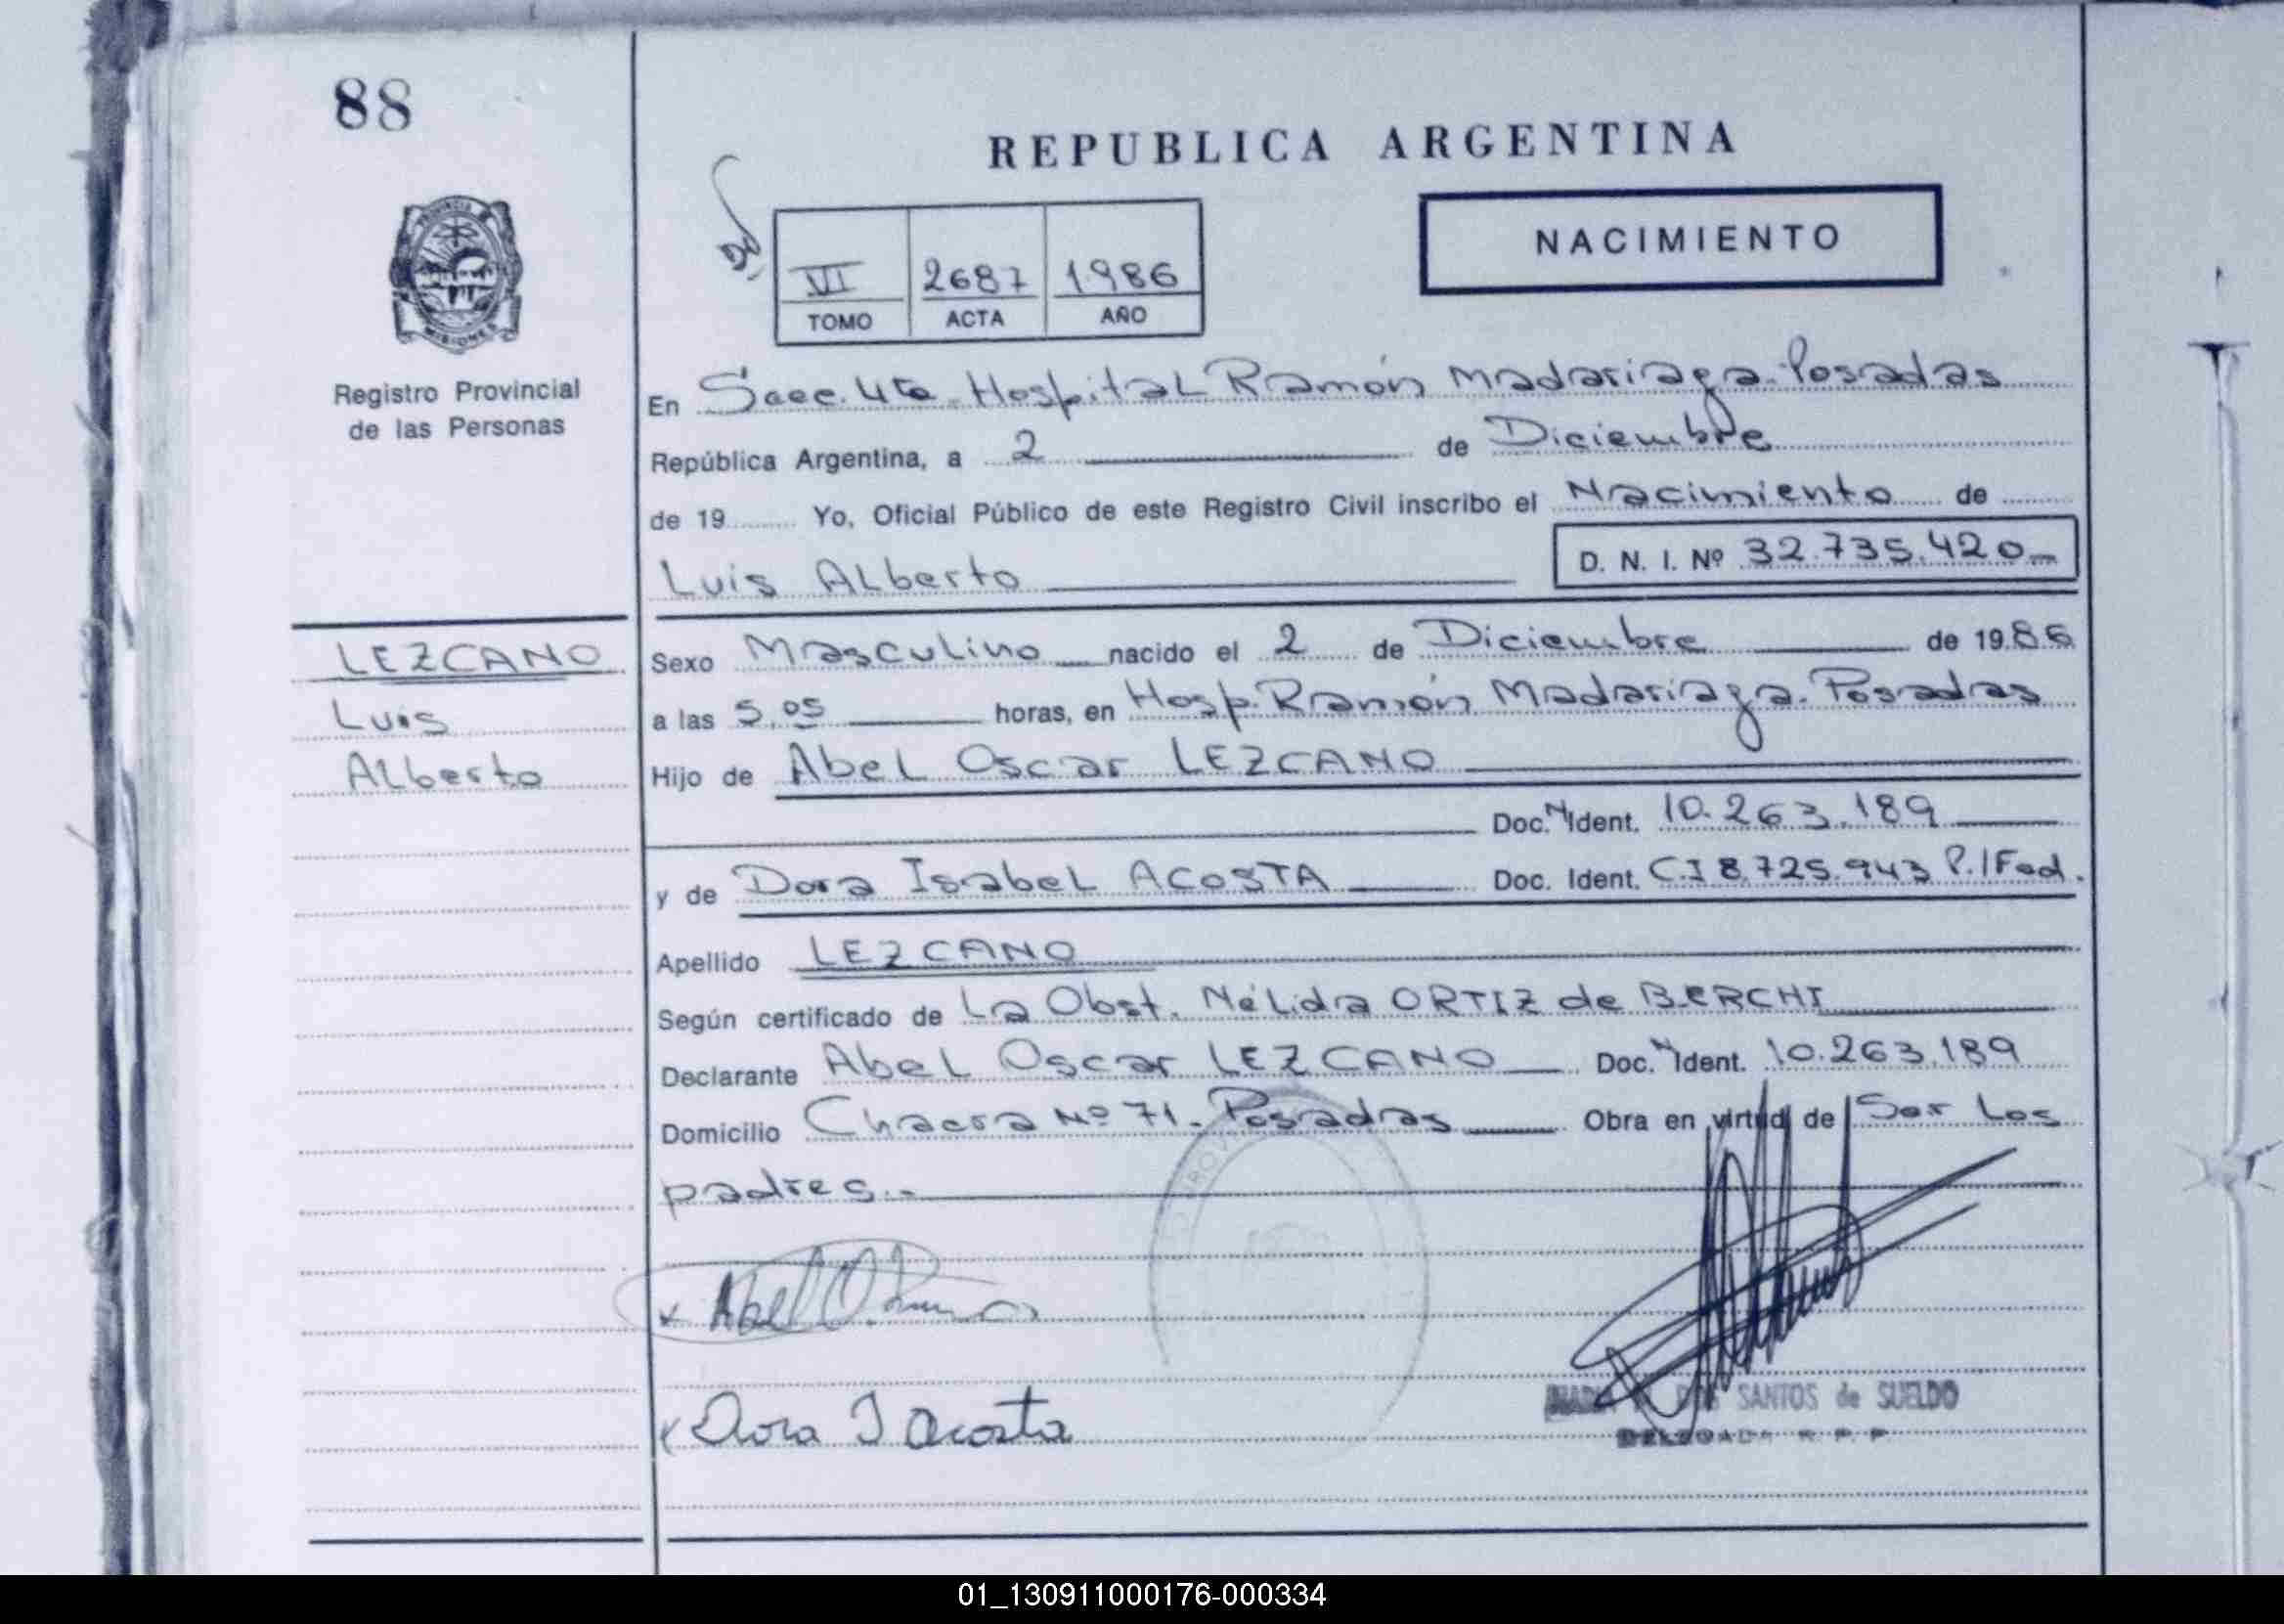 88
REPUBLICA ARGENTINA
NACIMIENTO
VI 2687 1986
TOMO ACTA AÑO
PROVINCIA DE
MISIONES
Registro Provincial
de las Personas
En Secc. 4ta. Hospital Ramón Madariaga. Posadas
República Argentina, a 2 de Diciembre
de 19 Yo, Oficial Público de este Registro Civil inscribo el Nacimiento de
Luis Alberto D. N. I. Nº 32.735.420
LEZCANO
Luis
Alberto
Sexo Masculino nacido el 2 de Diciembre de 1986
a las 5,05 horas, en Hosp. Ramón Madariaga. Posadas
Hijo de Abel Oscar LEZCANO
Doc. N Ident. 10.263.189
y de Dora Isabel ACOSTA Doc. Ident. C.I 8.725.943 P./Fed.
Apellido LEZCANO
Según certificado de La Obst. Nélida ORTIZ de BERCHI
Declarante Abel Oscar LEZCANO Doc. N Ident. 10.263.189
Domicilio Chacra Nº 71. Posadas Obra en virtud de Ser Los
padres.-
x Abel O.
x Dora I Acosta
DOS SANTOS de SUELDO
DELEGADA R. P. P
01_130911000176-000334